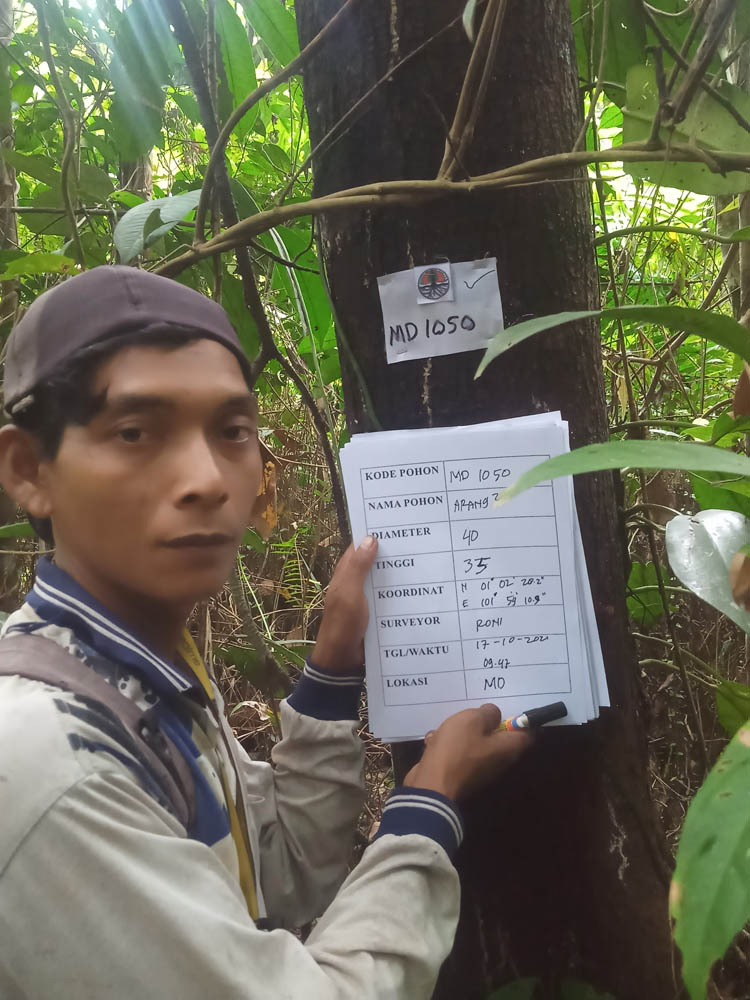 MD 1050
KODE POHON MD 1050
NAMA POHON ARANG²
DIAMETER 40
TINGGI 35
KOORDINAT N 01° 02' 20.2"
E 101° 59' 10.9"
SURVEYOR RONI
TGL/WAKTU 17-10-2021
09.47
LOKASI MD